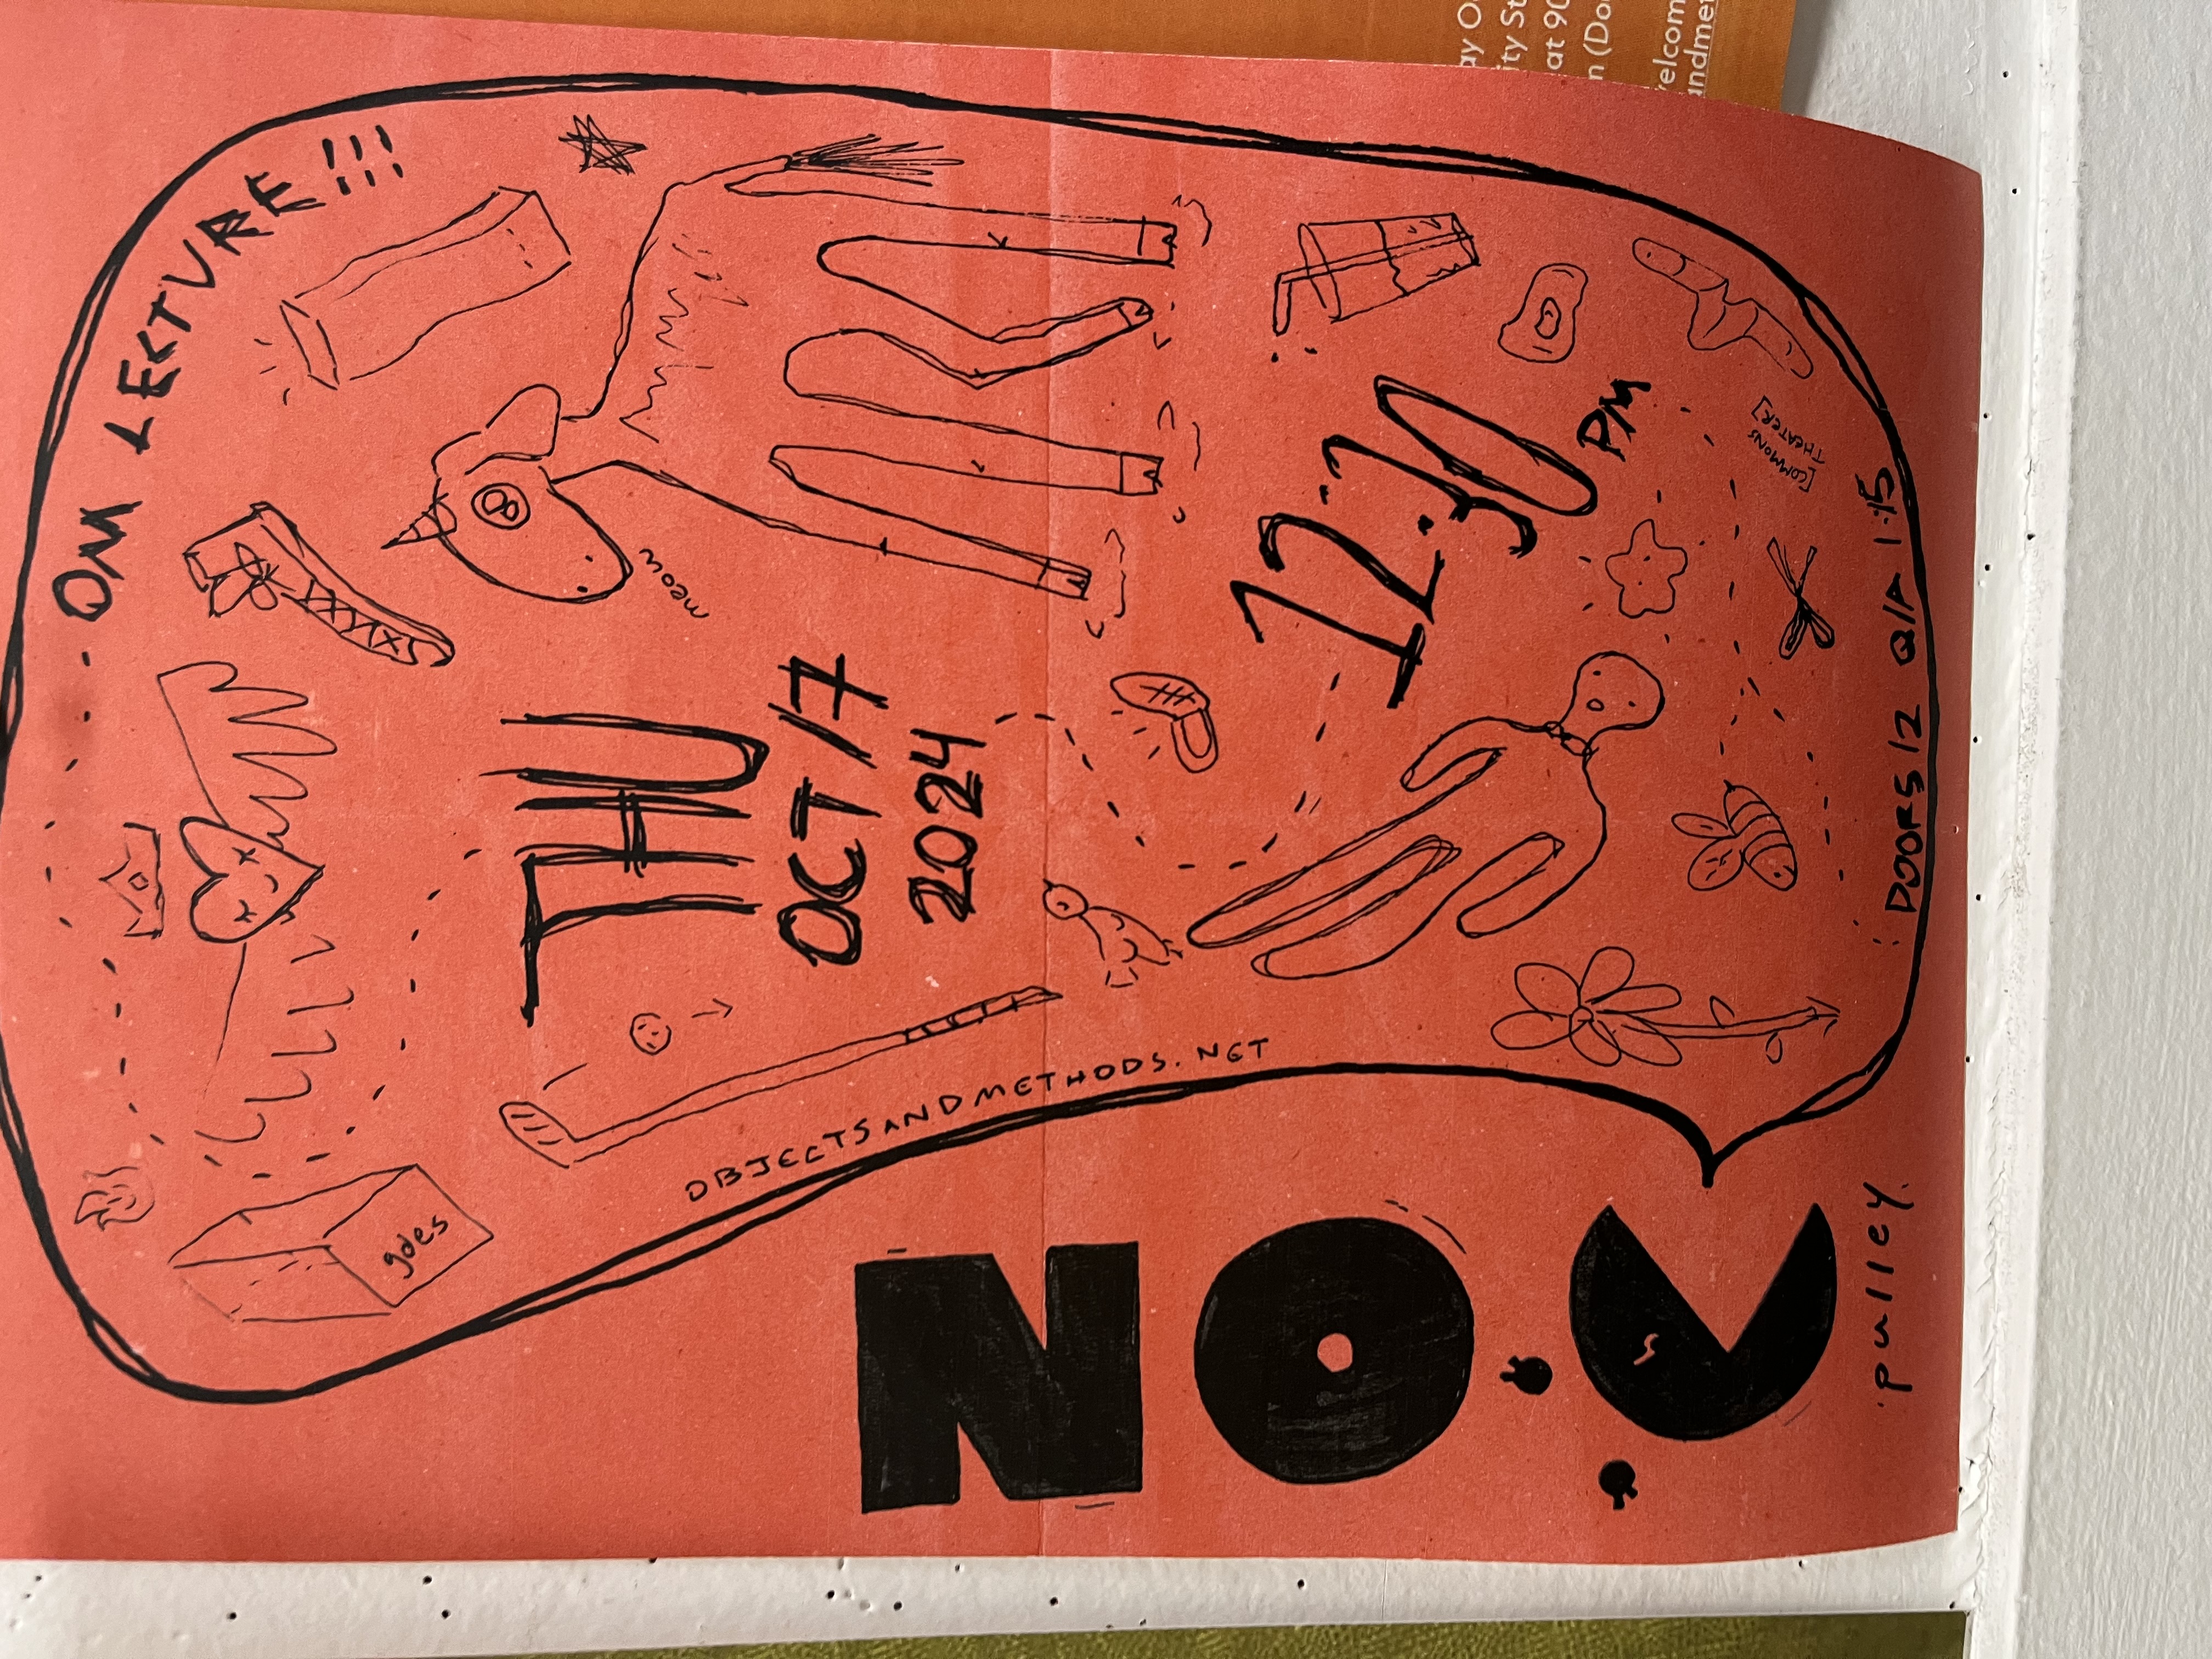 OM LECTURE!!!
gdes
THU
OCT 17
2024
meow
OBJECTSANDMETHODS.NET
12:30
PM
[COMMONS
THEATER]
DOORS 12 Q/A 1:15
pulley
ay O
ity St
at 90
m (Do
elcom
andmet